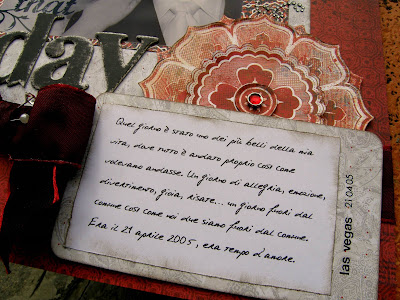 that
day
Quel giorno è stato uno dei più belli della mia
vita, dove tutto è andato proprio così come
volevano andasse. Un giorno di allegria, emozione,
divertimento, gioia, risate... un giorno fuori dal
comune così come noi due siamo fuori dal comune.
Era il 21 aprile 2005, era tempo d'amore.
las vegas 21.04.05